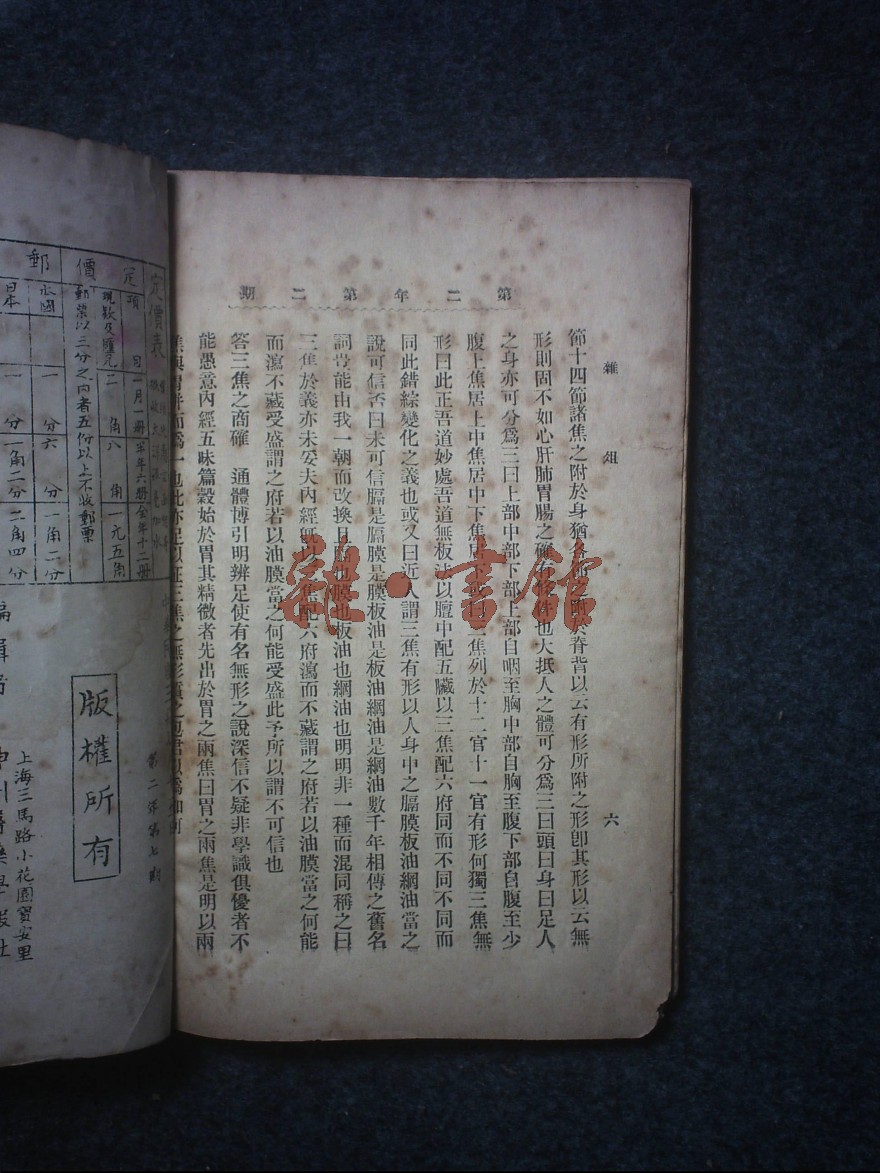 第二年第二期
雜組
六
節十四節諸焦之附於身猶各節之附於脊背以云有形所附之形卽其形以云無
形則固不如心肝肺胃腸之確有形件也大抵人之體可分爲三曰頭曰身曰足人
之身亦可分爲三曰上部中部下部上部自咽至胸中部自胸至腹下部自腹至少
腹上焦居上中焦居中下焦居下或曰三焦列於十二官十一官有形何獨三焦無
形曰此正吾道妙處吾道無板法以膻中配五臟以三焦配六府同而不同不同而
同此錯綜變化之義也或又曰近人謂三焦有形以人身中之膈膜板油網油當之
說可信否曰未可信膈是膈膜是膜板油是板油網油是網油數千年相傳之舊名
詞豈能由我一朝而改換且膈也膜也板油也網油也明明非一種而混同稱之曰
三焦於義亦未妥夫內經旣以三焦配六府瀉而不藏謂之府若以油膜當之何能
而瀉不藏受盛謂之府若以油膜當之何能受盛此予所以謂不可信也
答三焦之商確 通體博引明辨足使有名無形之說深信不疑非學識俱優者不
能愚意內經五味篇穀始於胃其精微者先出於胃之兩焦曰胃之兩焦是明以兩
雜·書館
定價表
版權所有
第二年第七期
上海三馬路小花園寶安里
郵票以三分之內者五份以上不收郵票